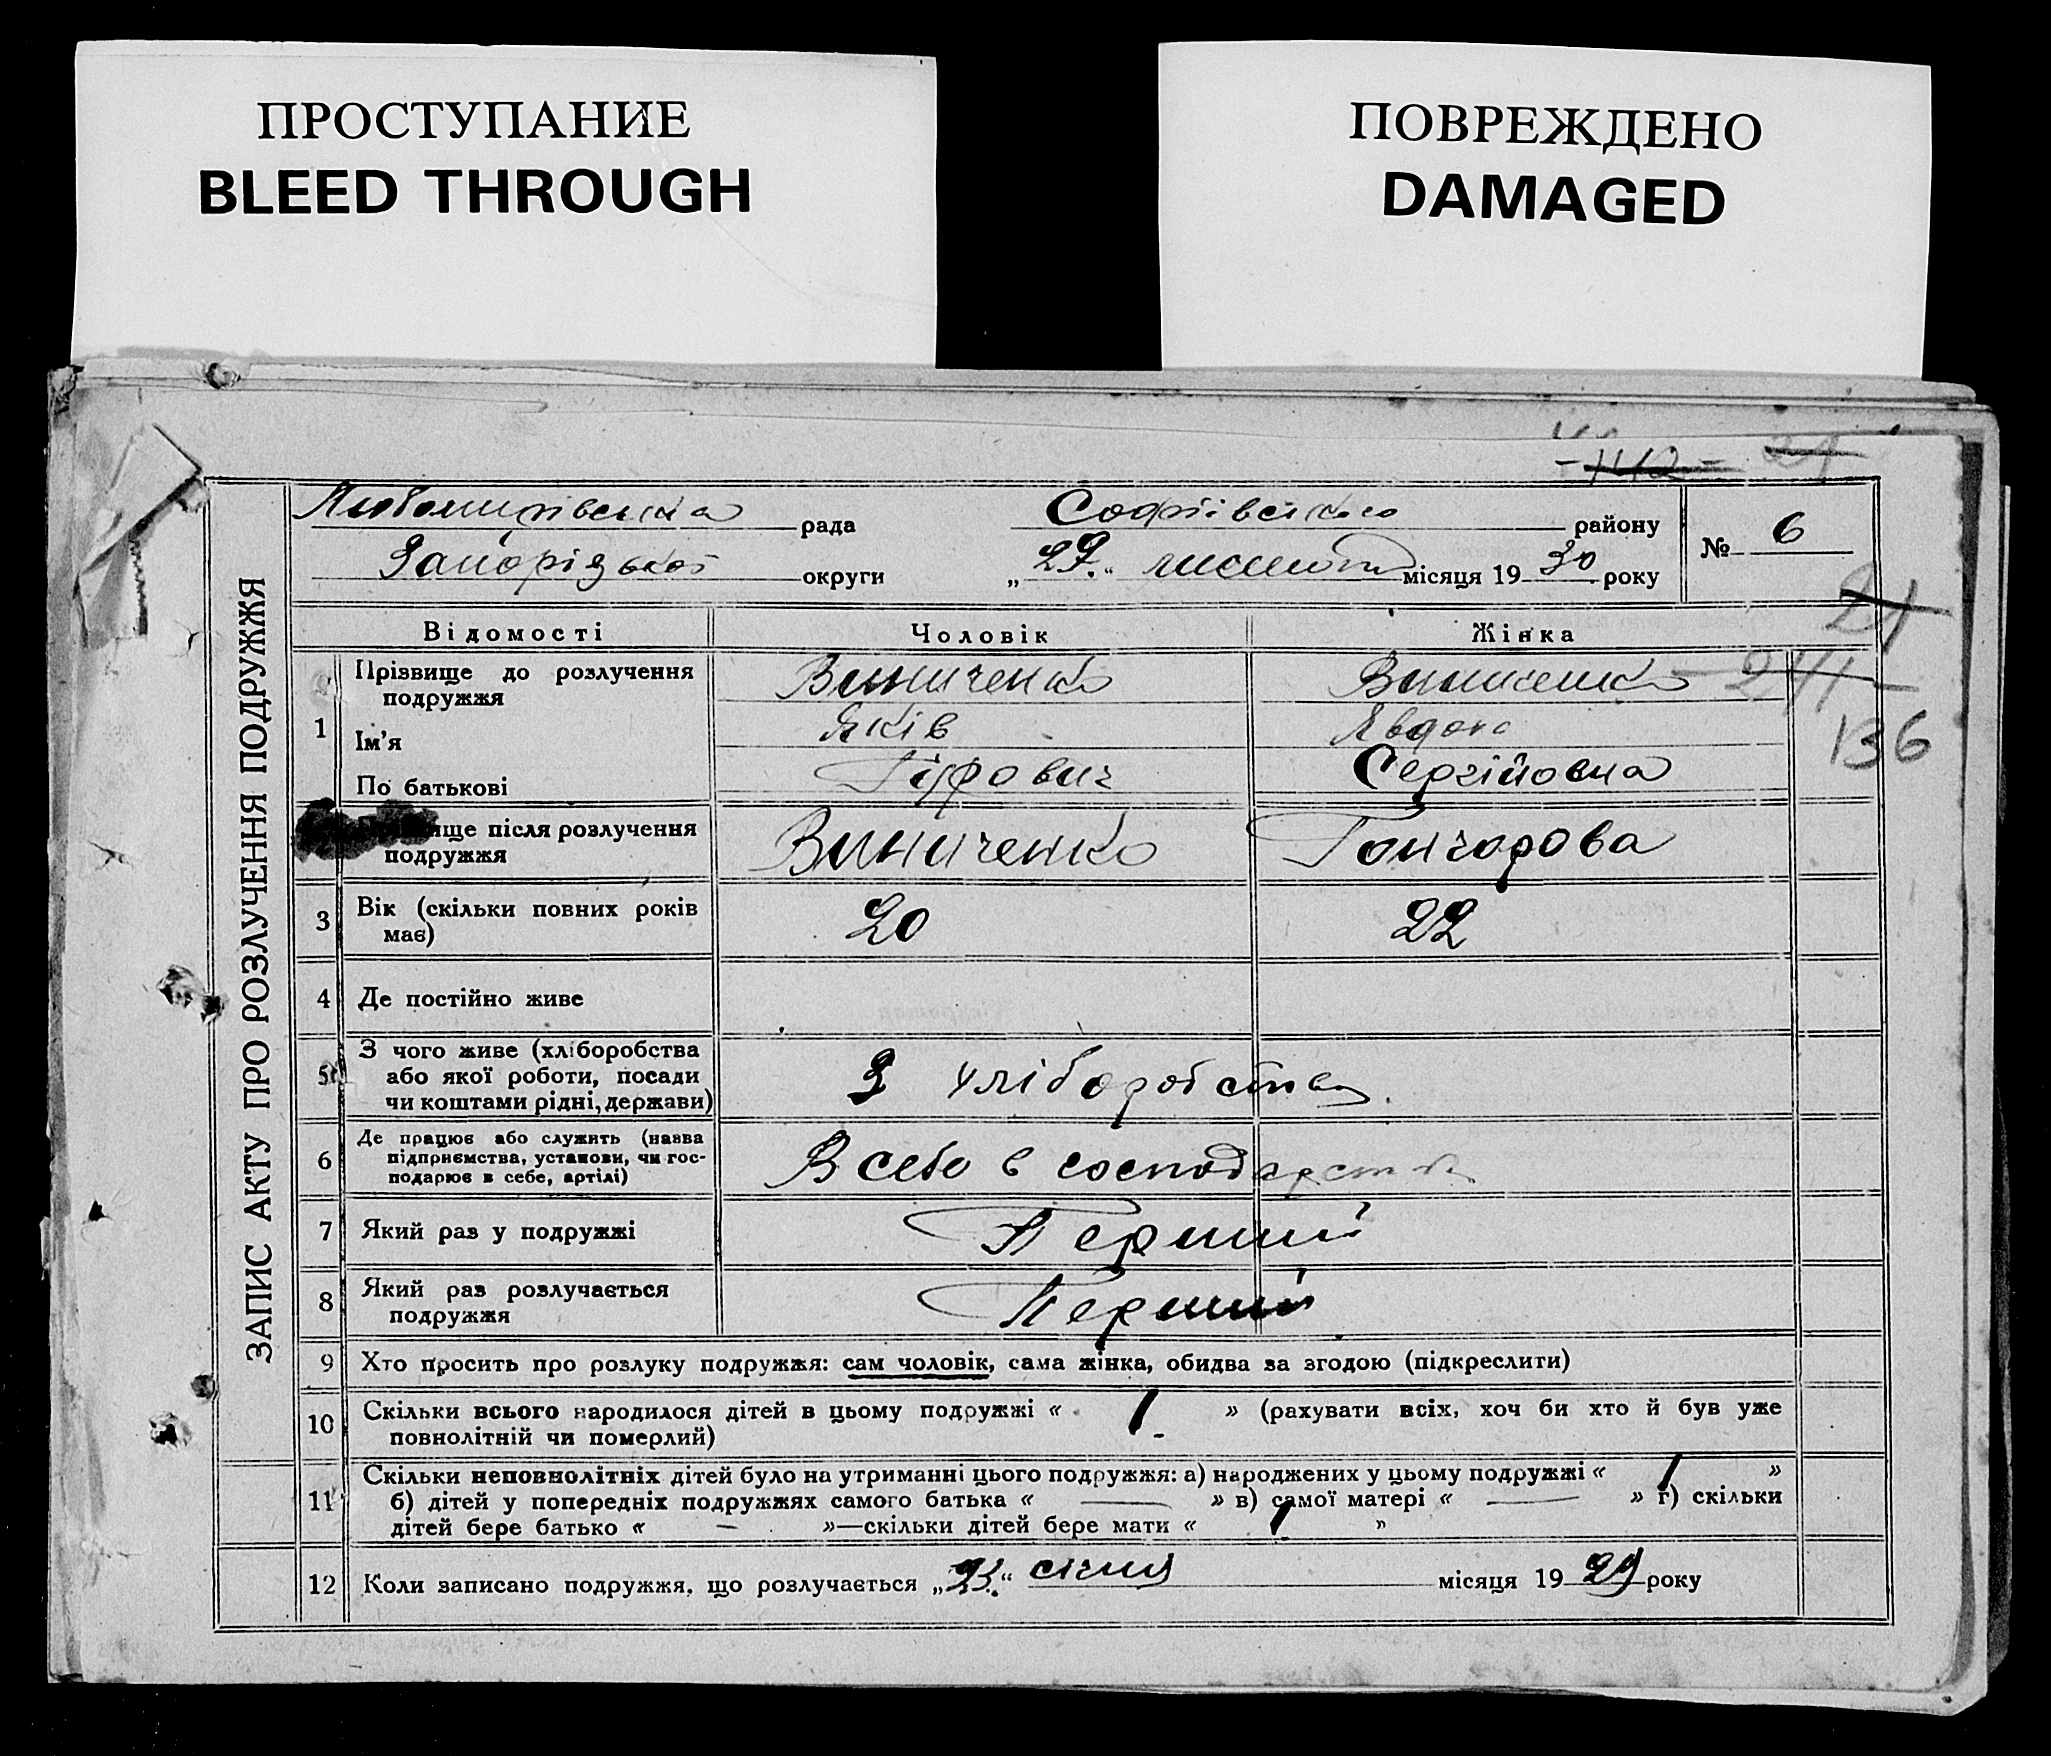 ПРОСТУПАНИЕ
BLEED THROUGH
ПОВРЕЖДЕНО
DAMAGED
- 1112 - 21
ЗАПИС АКТУ ПРО РОЗЛУЧЕННЯ ПОДРУЖЖЯ
Любомирівська рада Софіївського району
Запорізької округи „ 27 “ місяця 19 30 року
№ 6
21
Відомості Чоловік Жінка
1 Прізвище до розлучення подружжя Виниченко Виниченко
- 211 -
Ім'я Яків Явдоха
136
По батькові Сергійовна
ище після розлучення подружжя Виниченко Гончарова
3 Вік (скільки повних років має) 20 22
4 Де постійно живе
5 З чого живе (хліборобства або якої роботи, посади чи коштами рідні, держави) З хліборобства
6 Де працює або служить (назва підприємства, установи, чи господарює в себе, артілі) В себе в господарстві
7 Який раз у подружжі Перший
8 Який раз розлучається подружжя Перший
9 Хто просить про розлуку подружжя: сам чоловік, сама жінка, обидва за згодою (підкреслити)
10 Скільки всього народилося дітей в цьому подружжі « 1 » (рахувати всіх, хоч би хто й був уже
повнолітній чи померлий)
11 Скільки неповнолітніх дітей було на утриманні цього подружжя: а) народжених у цьому подружжі « 1 »
б) дітей у попередніх подружжях самого батька « — » в) самої матері « — » г) скільки
дітей бере батько « — »—скільки дітей бере мати « 1 »
12 Коли записано подружжя, що розлучається „ 23 “ січня місяця 19 29 року